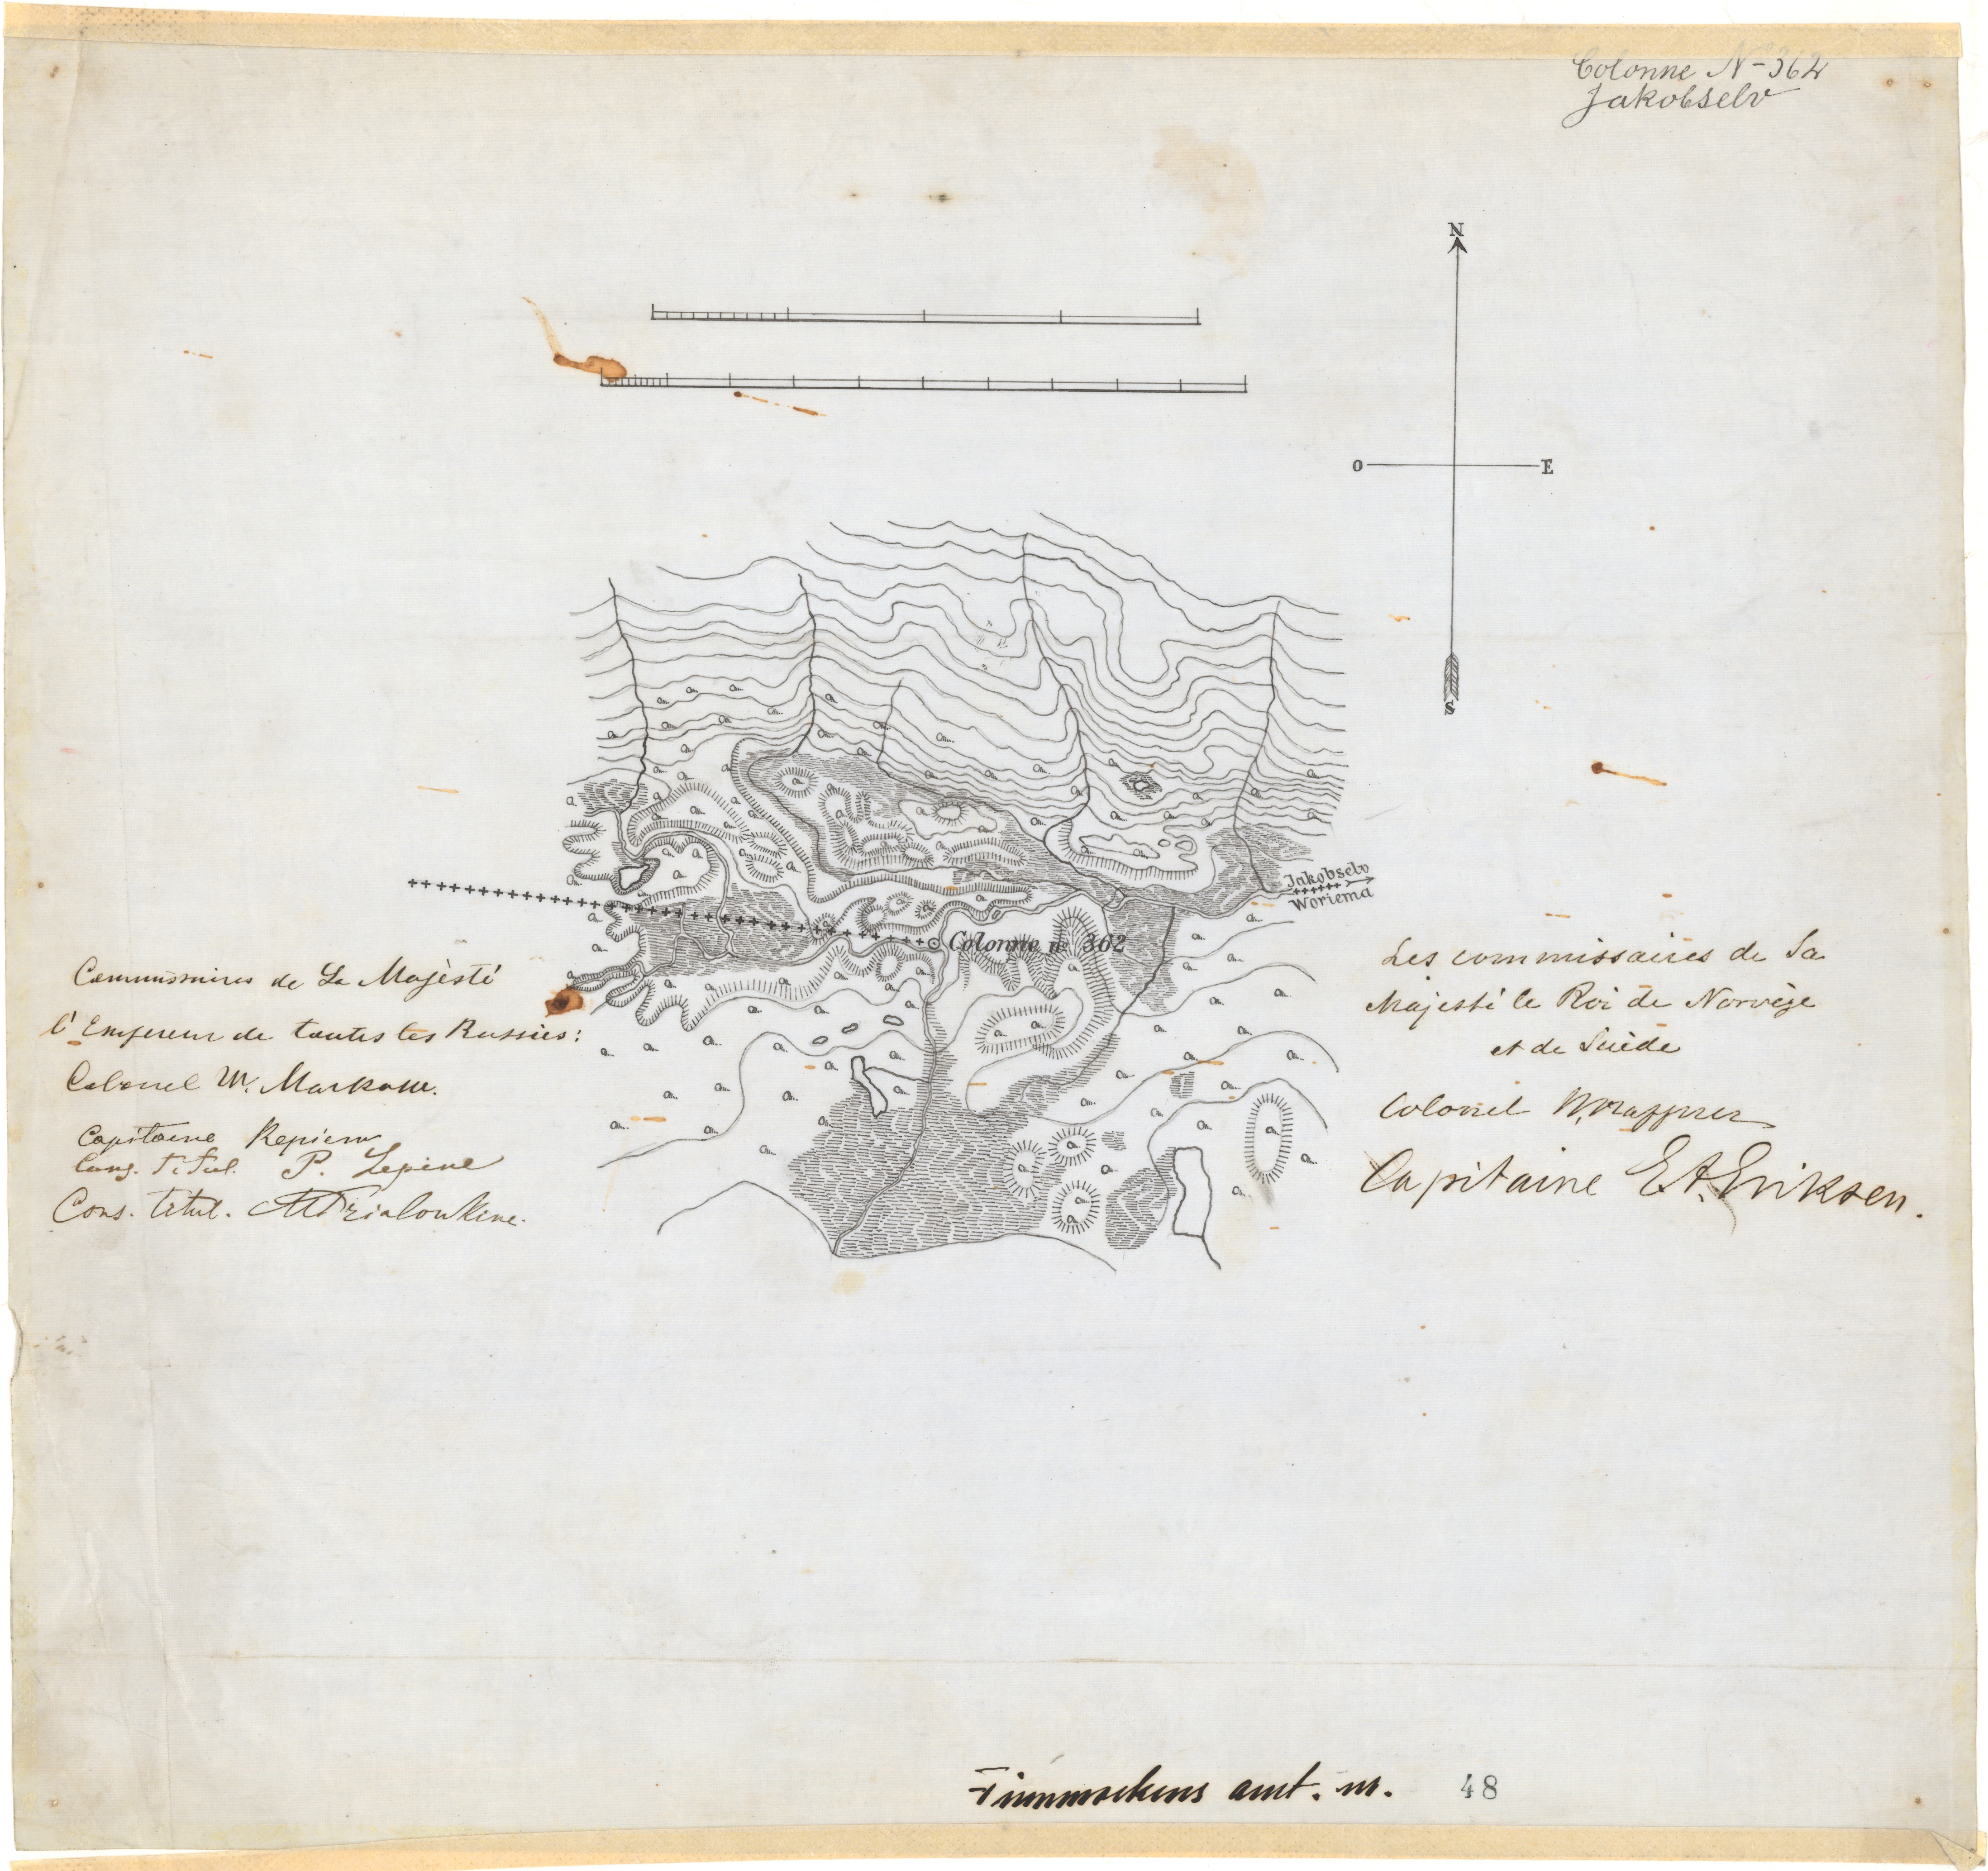 Colonne No 362
Jakobselv
N
O E
S
Jakobselv
Woriema
Colonne no 362
Commissaires de Sa Majèsté
l'Empereur de toutes les Russies:
Colonel W. Markow.
Capitaine
Cons. Titul. P. Lepine
Cons. titul.
Les commissaires de Sa
Majesté le Roi de Norvège
et de Suède
Colonel
Capitaine E. A. Eriksen.
Finmarkens amt. n. 48